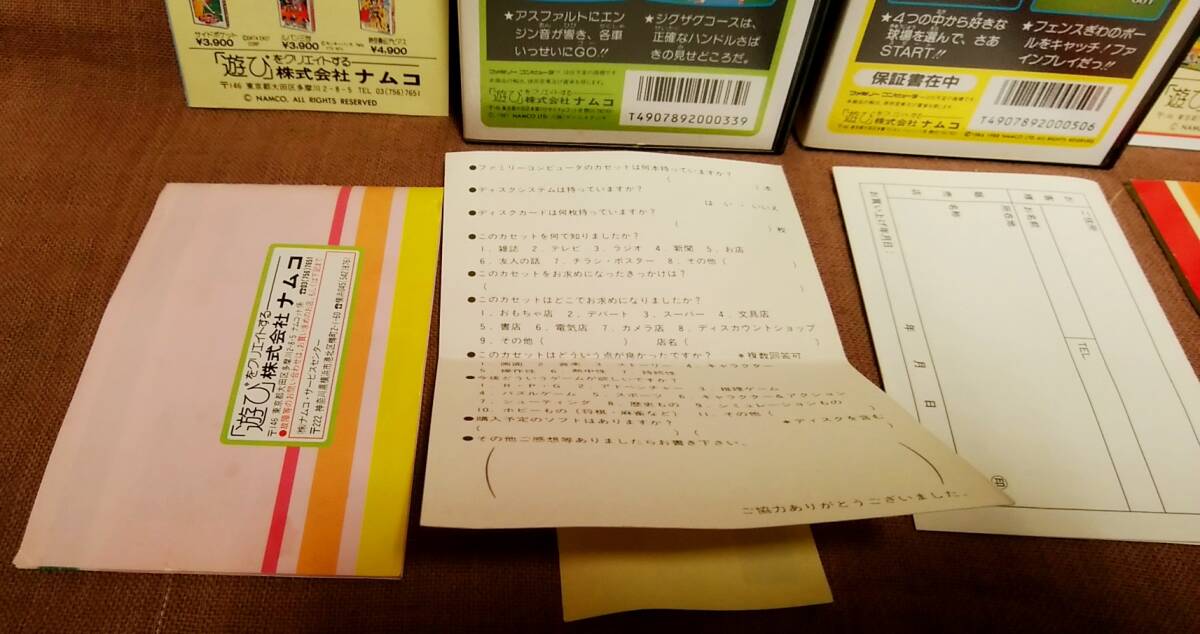 サイドポケット
¥3,900
©DATA EAST CORP.
¥3,900
¥4,900
「遊び」をクリエイトする
株式会社 ナムコ
〒146 東京都大田区多摩川2-8-5 TEL 03(756)7651
© NAMCO, ALL RIGHTS RESERVED
★アスファルトにエン
ジン音が響き、各車
いっせいにGO!!
★ジグザグコースは、
正確なハンドルさば
きの見せどころだ。
「遊び」をクリエイトする
株式会社 ナムコ
T4907892000339
★4つの中から好きな
球場を選んで、さあ
START!!
★フェンスぎわのボー
ルをキャッチ!ファ
インプレイだっ!!
保証書在中
「遊び」をクリエイトする
株式会社 ナムコ
T4907892000506
「遊び」をクリエイトする
株式会社 ナムコ
〒146 東京都大田区多摩川2-8-5
☎03(756)7651
(株)ナムコ・サービスセンター
〒222 神奈川県横浜市港北区樽町2-1-60 ☎横浜045(542)8761
●ファミリーコンピュータのカセットは何本持っていますか?
( )本
●ディスクシステムは持っていますか?
は い・いいえ
●ディスクカードは何枚持っていますか?
( )枚
●このカセットを何で知りましたか?
1. 雑誌 2. テレビ 3. ラジオ 4. 新聞 5. お店
6. 友人の話 7. チラシ・ポスター 8. その他( )
●このカセットをお求めになったきっかけは?
( )
●このカセットはどこでお求めになりましたか?
1. おもちゃ店 2. デパート 3. スーパー 4. 文具店
5. 書店 6. 電気店 7. カメラ店 8. ディスカウントショップ
9. その他( ) 店名( )
●このカセットはどういう点が良かったですか? ＊複数回答可
1. 画面 2. 音楽 3. ストーリー 4. キャラクター
5. 操作性 6. 熱中性 7. 持続性
●今後どういうゲームが欲しいですか?
1. R・P・G 2. アドベンチャー 3. 推理ゲーム
4. パズルゲーム 5. スポーツ 6. キャラクター&アクション
7. シューティング 8. 歴史もの 9. シミュレーションもの
10. ホビーもの(将棋・麻雀など) 11. その他( )
●購入予定のソフトはありますか? ＊ディスクを含む
( ) ( )
●その他ご感想等ありましたらお書き下さい。
ご協力ありがとうございました。
ご住所
お名前
TEL
お客様
所在地
名称
販売店
印
お買い上げ年月日: 年 月 日